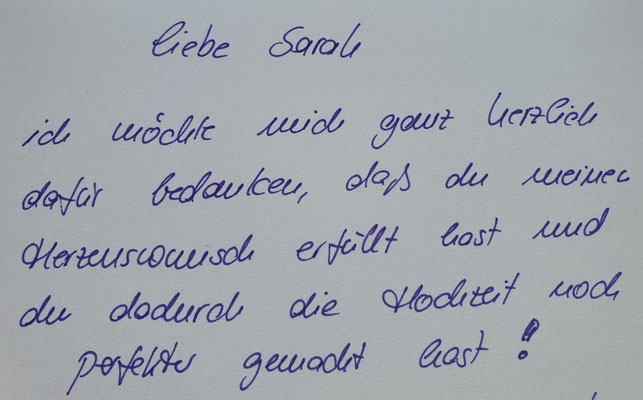 liebe Sarah
ich möchte mich ganz herzlich
dafür bedanken, daß du meinen
Herzenswunsch erfüllt hast und
du dadurch die Hochzeit noch
perfekter gemacht hast!